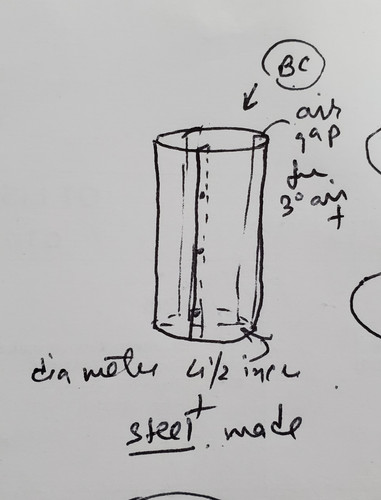 BC
air
gap
for
3° air
+
diameter 4 1/2 inch
+
steel made